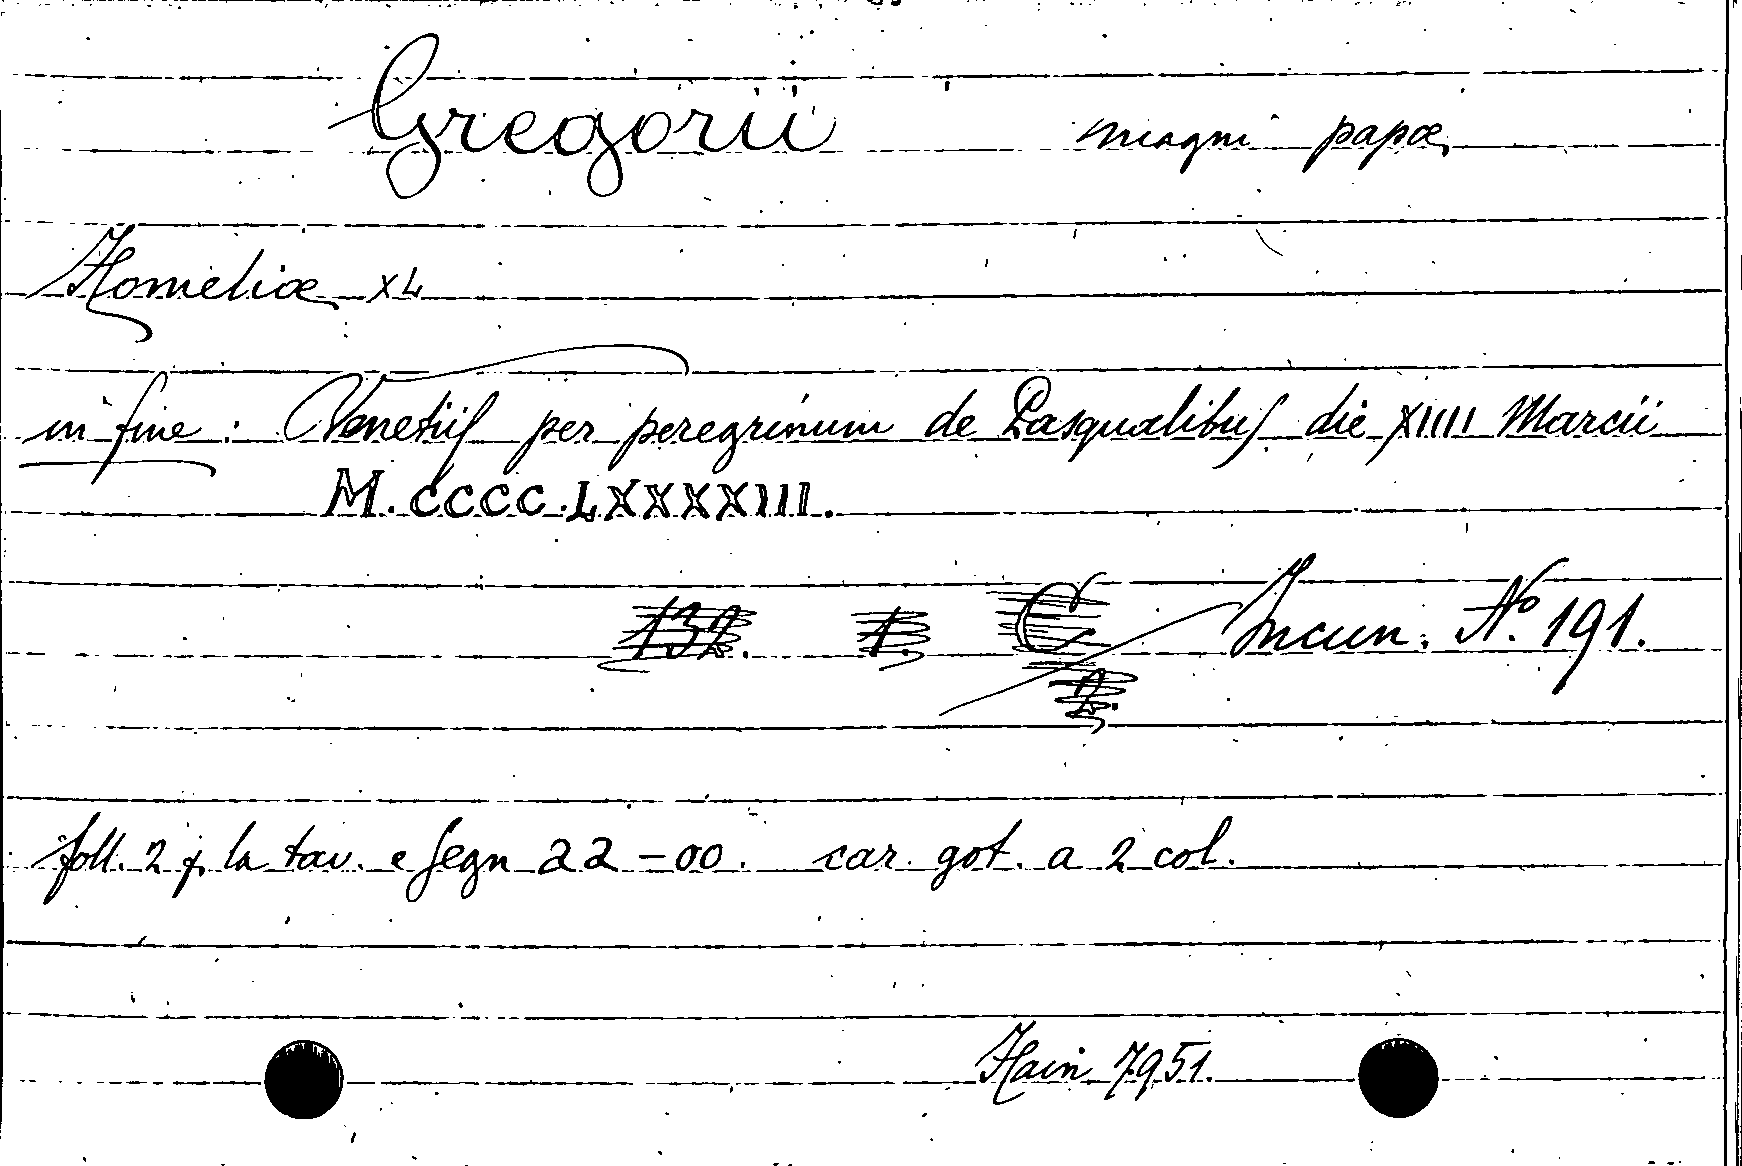 Gregorii magni papæ
Homeliæ XL
in fine: Venetiis per peregrinum de Pasqualibus die XIIII Marcii
M. CCCC.LXXXXIII.
132. 1. C Incun. Nº 191.
2.
foll. 2 p. la tav. e segn aa - oo. car. got. a 2 col.
Hain 7951.